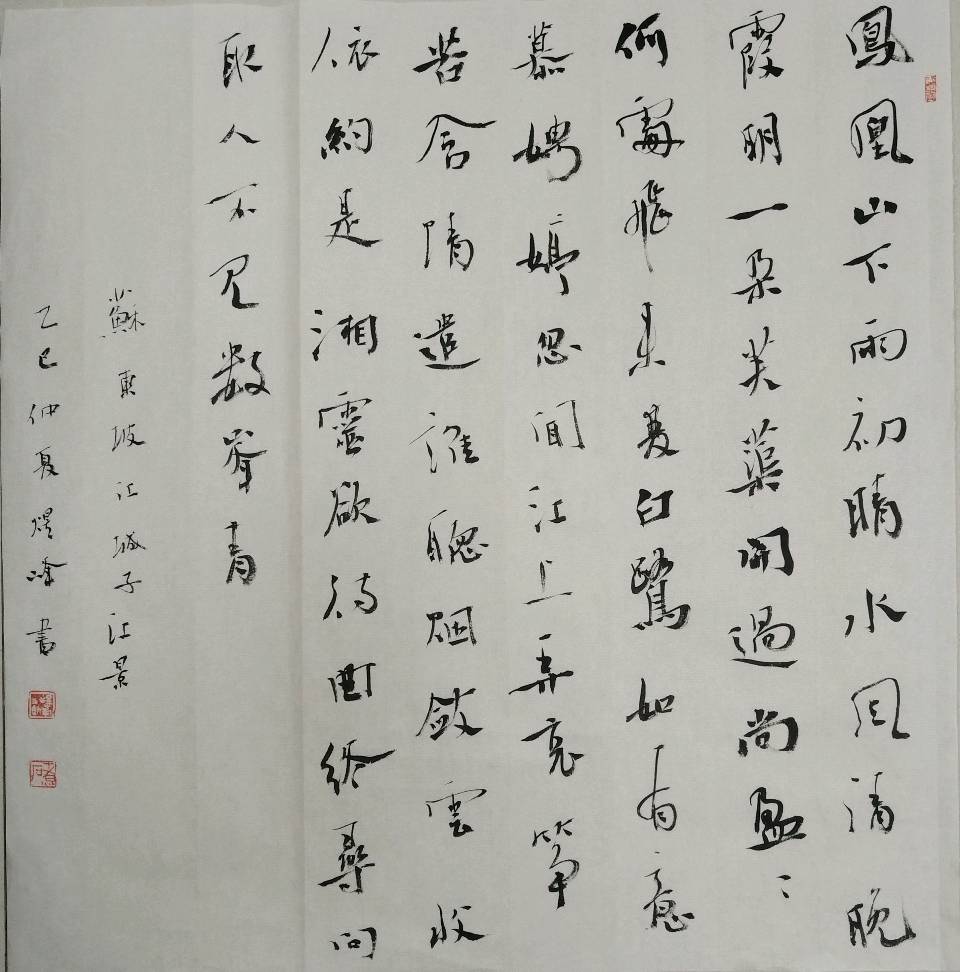 鳳凰山下雨初晴水風清晚
霞明一朵芙蕖開過尚盈〻
何處飛來雙白鷺如有意
慕娉婷忽聞江上弄哀箏
苦含情遣誰聽烟斂雲收
依約是湘靈欲待曲終尋問
取人不見數峯青
蘇東坡江城子江景
乙巳仲夏煜峰書